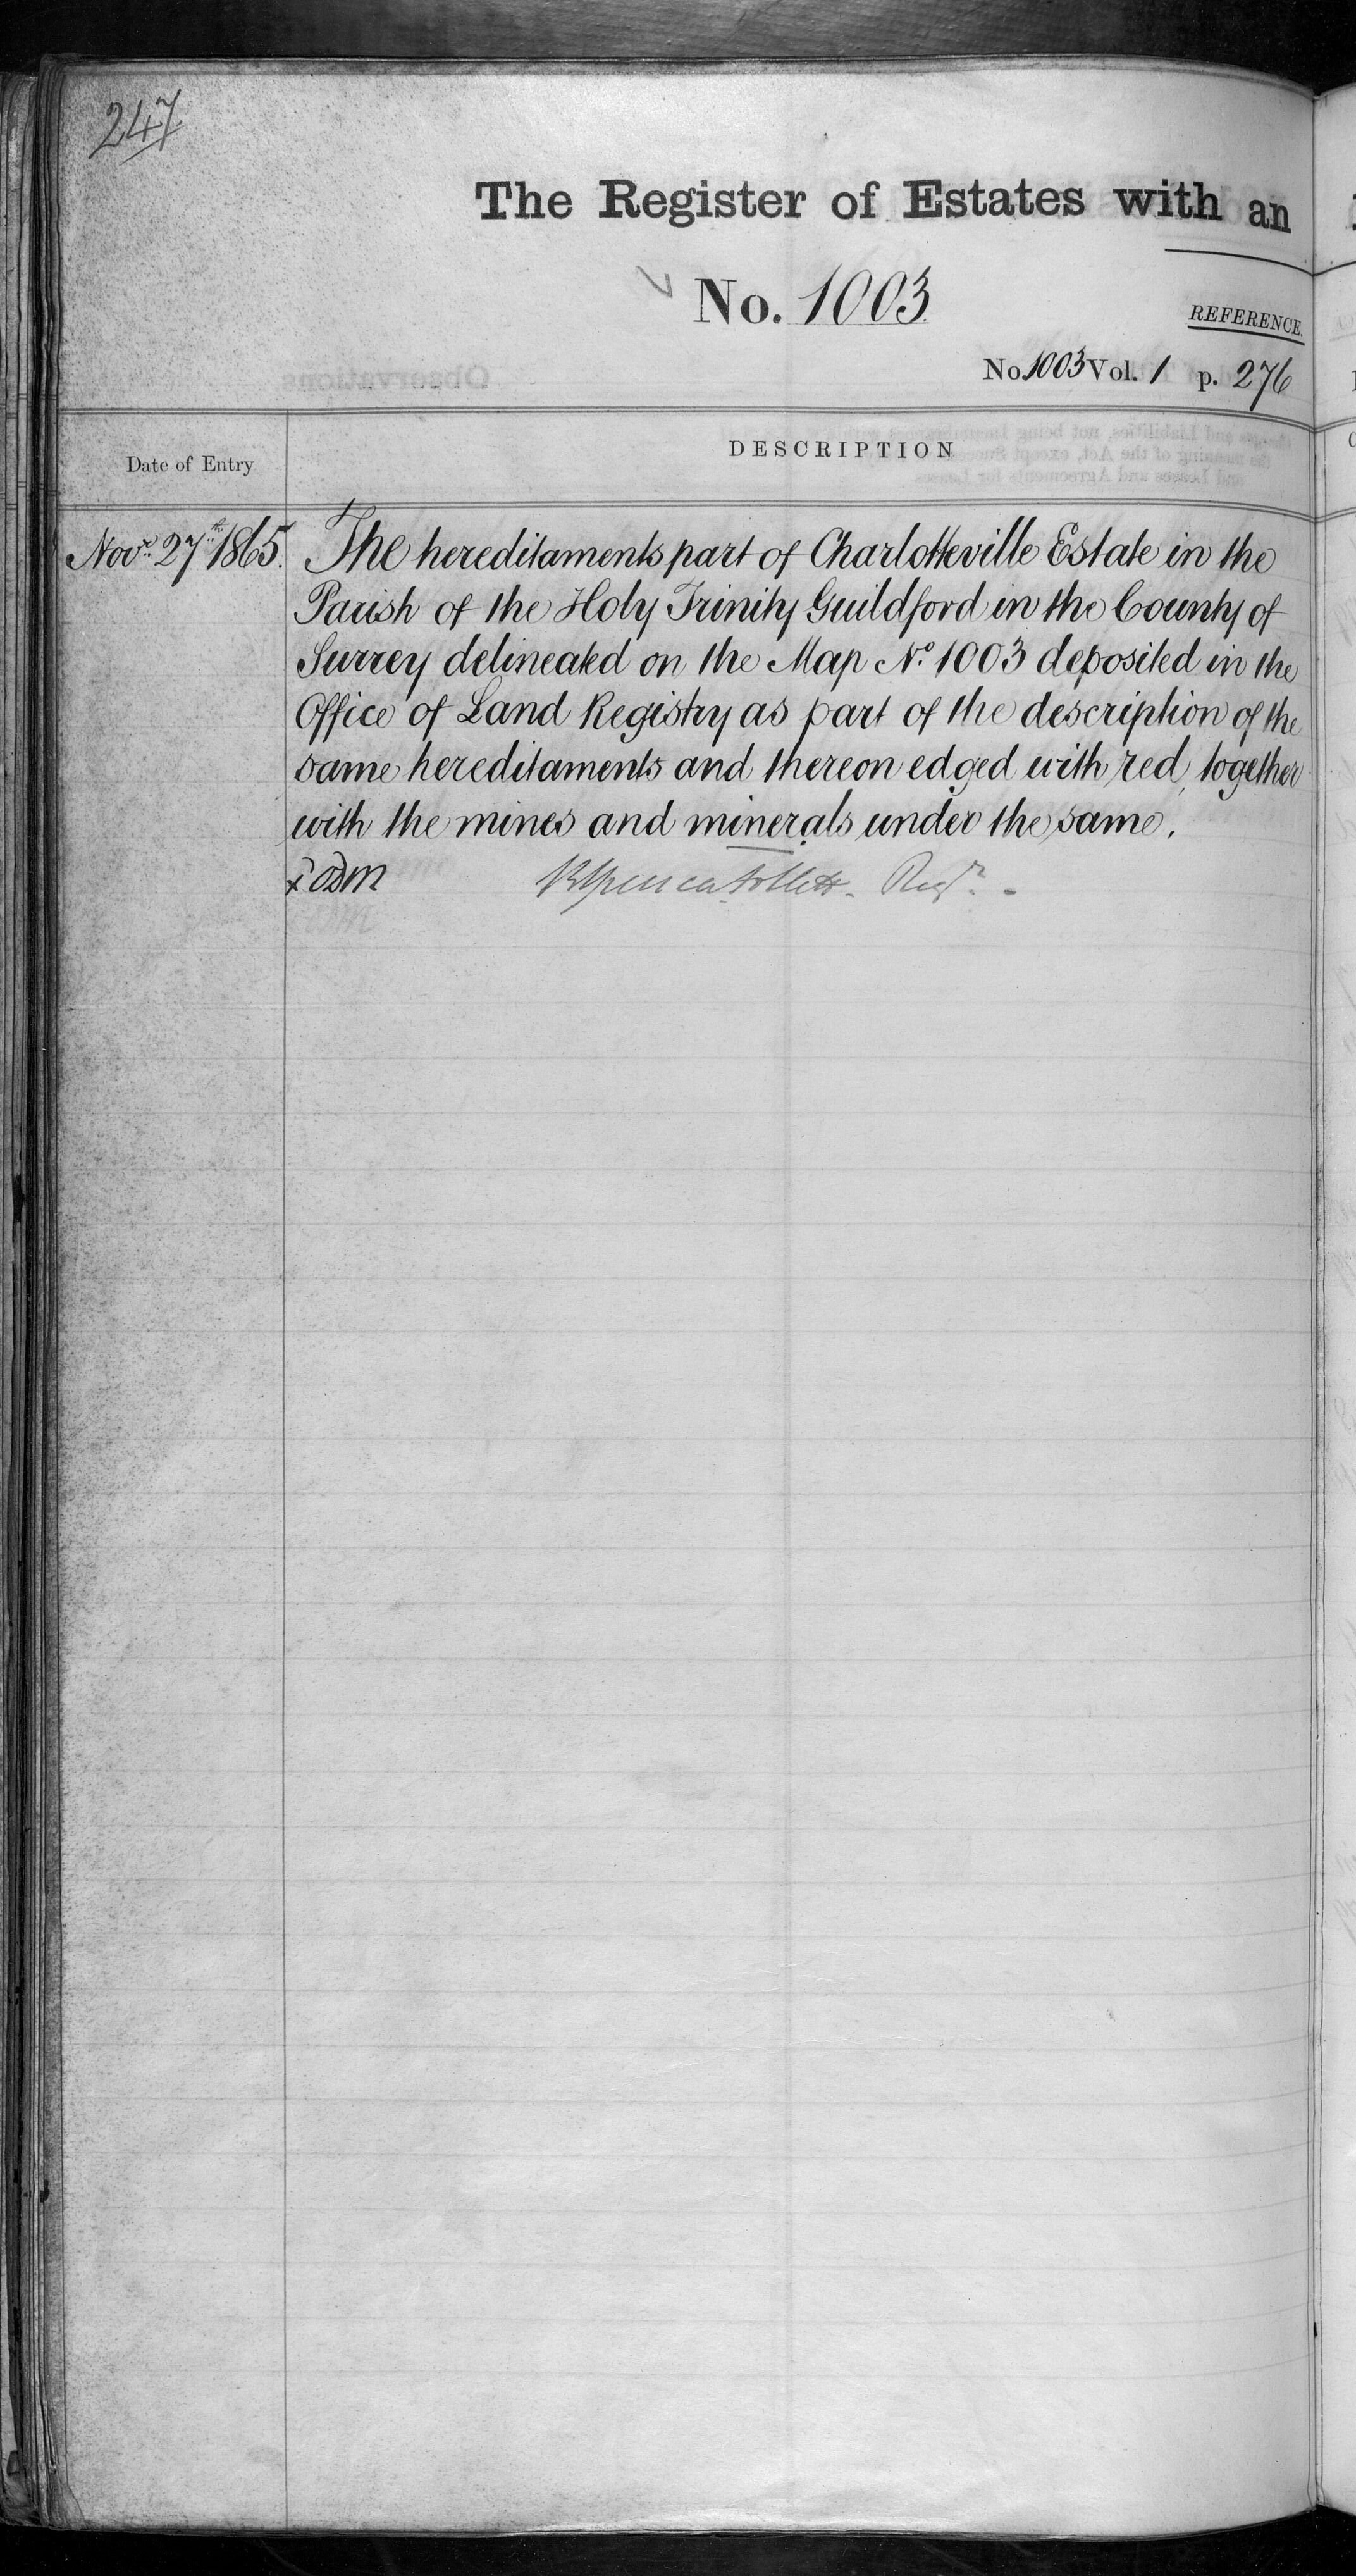 247
The Register of Estates with an
No. 1003
REFERENCE.
No 1003 Vol. 1 p. 276
Date of Entry
DESCRIPTION
Novr. 27th 1865. The hereditaments part of Charlotteville Estate in the
Parish of the Holy Trinity Guildford in the County of
Surrey delineated on the Map No. 1003 deposited in the
Office of Land Registry as part of the description of the
same hereditaments and thereon edged with red, together
with the mines and minerals under the same.
Follett Regr.